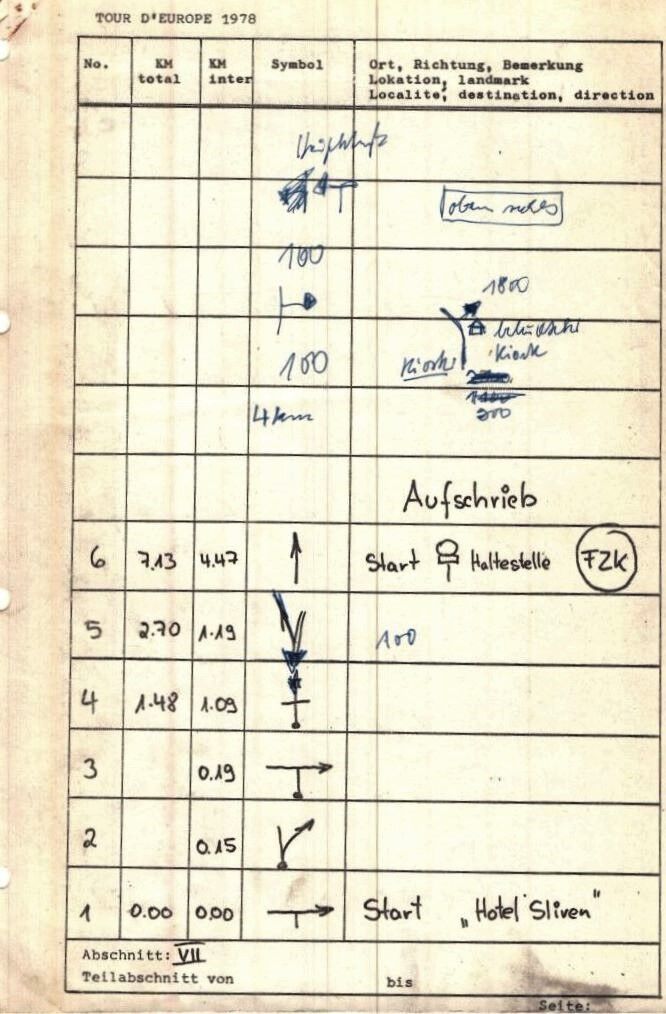 TOUR D'EUROPE 1978
No. KM total KM inter Symbol Ort, Richtung, Bemerkung
Lokation, landmark
Localite, destination, direction
oben rechts
100
1800
Kiosk
100 Kiosk
4 km 200
Aufschrieb
6 7.13 4.47 Start Haltestelle FZK
5 2.70 1.19 100
4 1.48 1.09
3 0.19
2 0.15
1 0.00 0.00 Start „Hotel Sliven"
Abschnitt: VII
Teilabschnitt von bis
Seite: